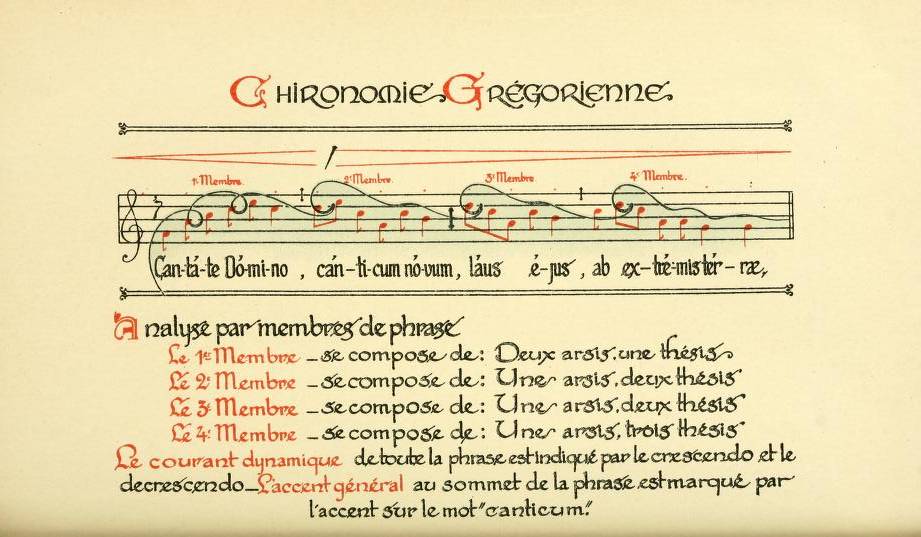 Chironomie Grégorienne
1er Membre. 2e Membre. 3e Membre. 4e Membre.
Can-tá-te Dó-mi-no, cán-ti-cum nó-vum, láus é-jus, ab ex-tré-mis tér-ræ,
Analyse par membres de phrase
Le 1er Membre – se compose de: Deux arsis, une thésis
Le 2e Membre – se compose de: Une arsis, deux thésis
Le 3e Membre – se compose de: Une arsis, deux thésis
Le 4e Membre – se compose de: Une arsis, trois thésis
Le courant dynamique de toute la phrase est indiqué par le crescendo et le
decrescendo – L'accent général au sommet de la phrase est marqué par
l'accent sur le mot "canticum".